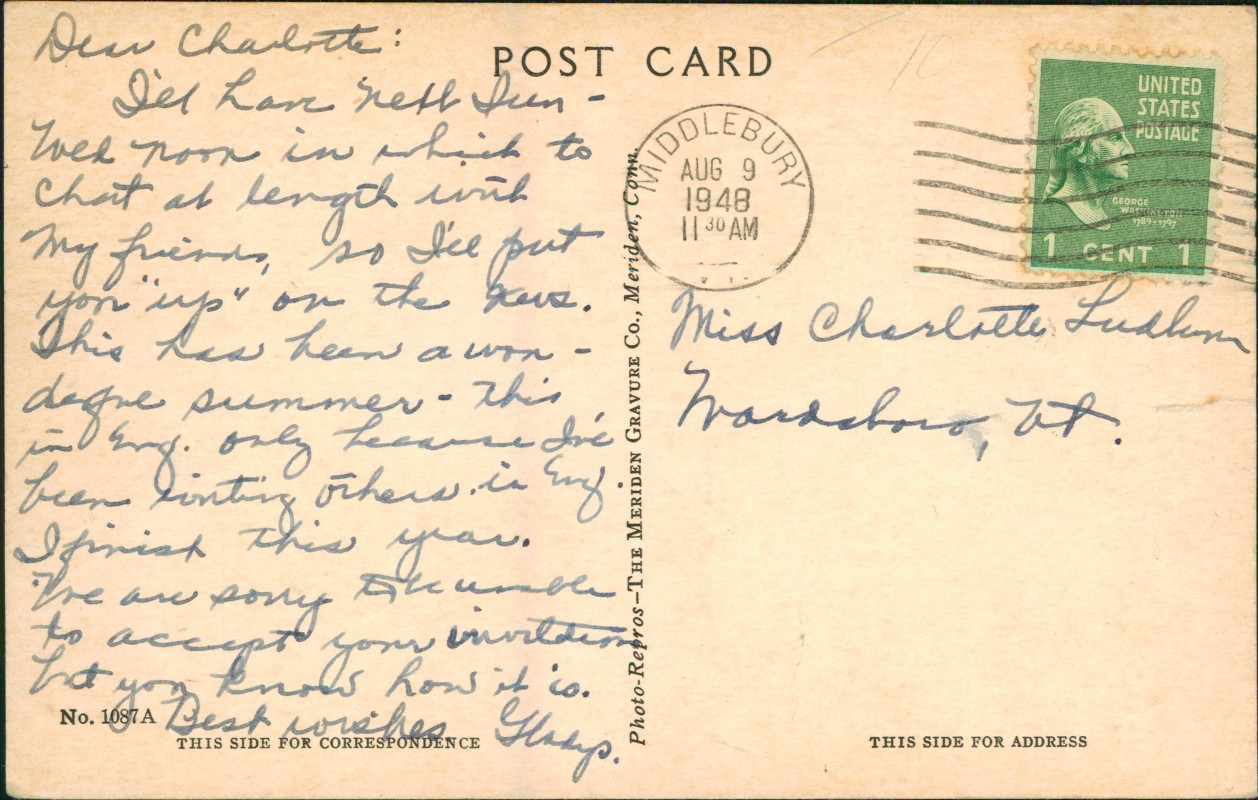 POST CARD
Dear Charlotte:
I'll have next Sun-
Wed noon in which to
chat at length with
my friends, so I'll put
you "up" on the news.
This has been a won-
derful summer - this
in Eng. only because I've
been writing others in Eng.
I finish this year.
We are sorry to be unable
to accept your invitation
but you know how it is.
Best wishes Gladys.
No. 1087A
THIS SIDE FOR CORRESPONDENCE
Photo-Repros—THE MERIDEN GRAVURE CO., Meriden, Conn.
MIDDLEBURY
AUG 9
1948
11 30 AM
UNITED
STATES
POSTAGE
GEORGE
WASHINGTON
1789-1797
1 CENT 1
10
Miss Charlotte Ludlum
Wardsboro, Vt.
THIS SIDE FOR ADDRESS